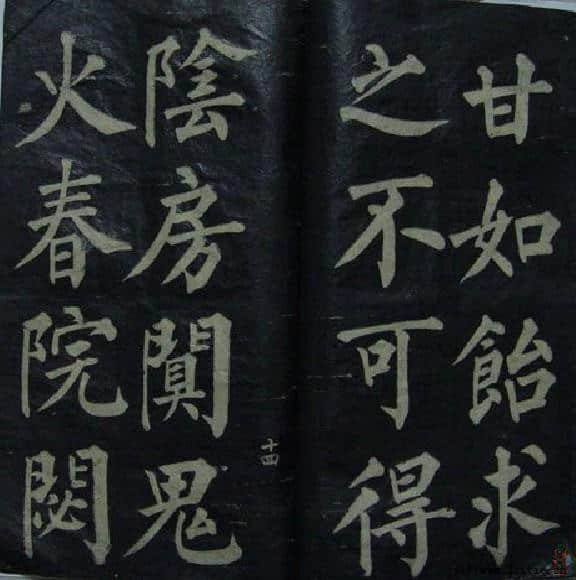 甘如飴求
之不可得
十四
陰房闃鬼
火春院閟